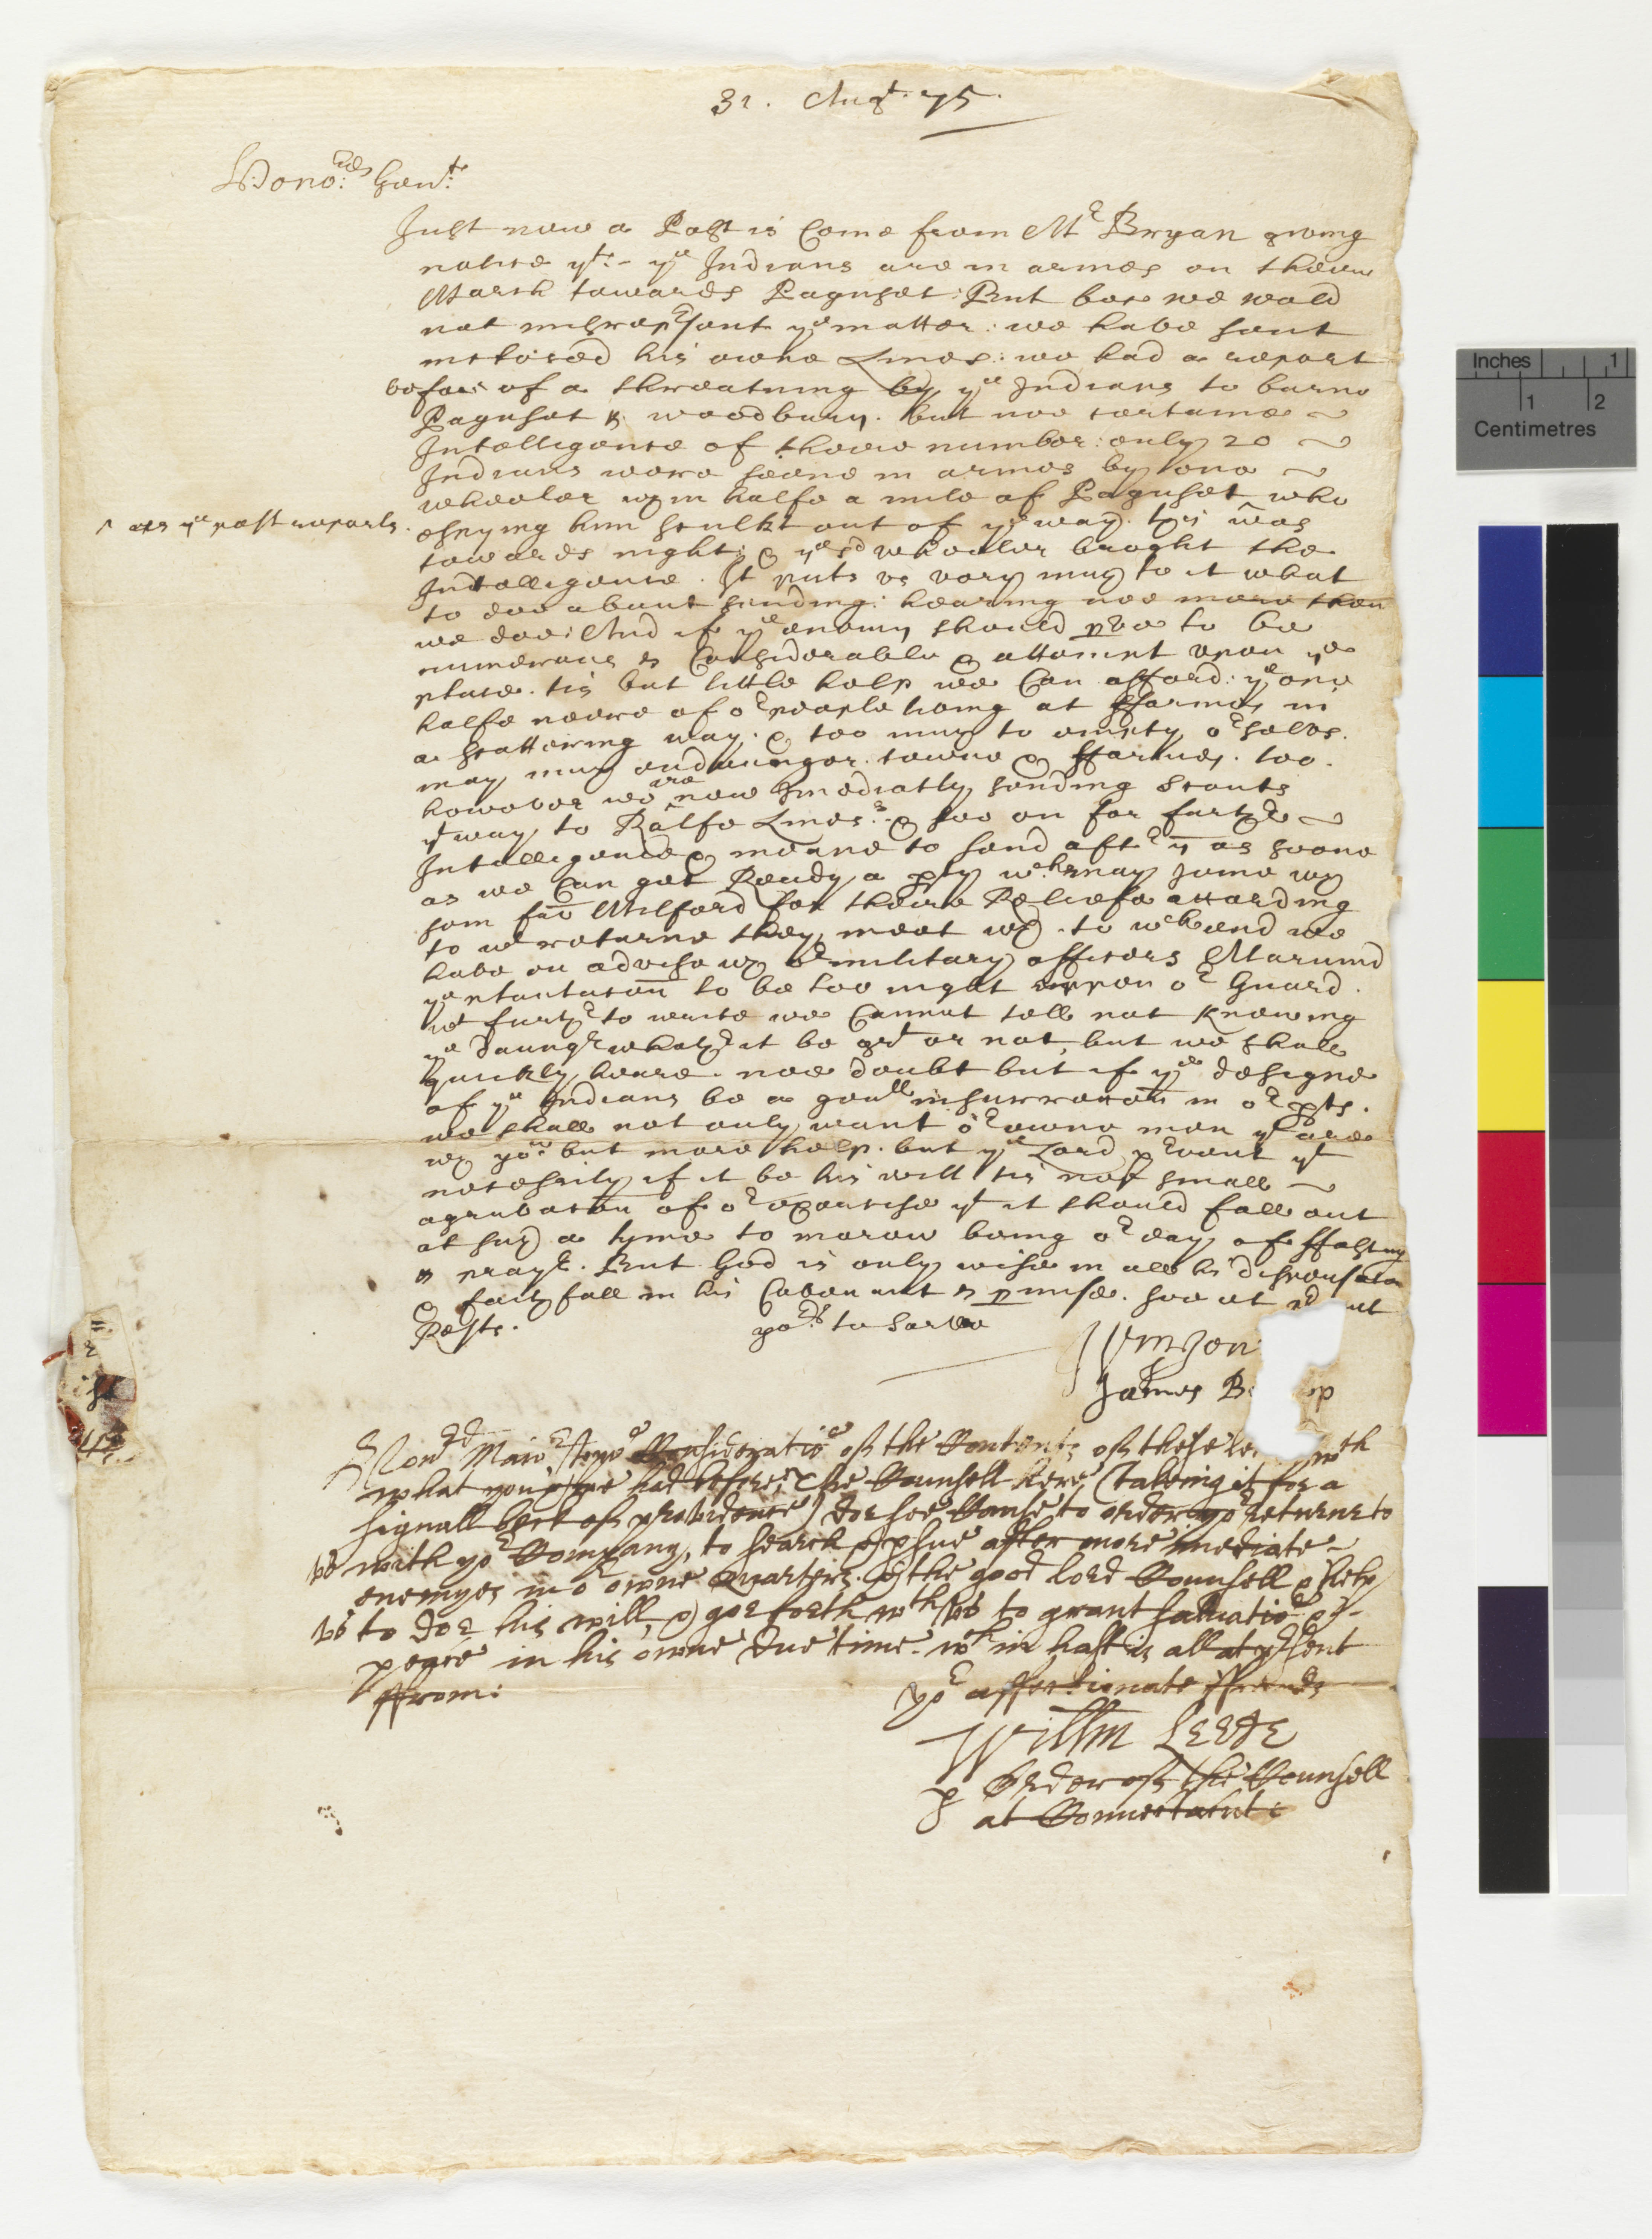 31. Augt. 75.
Honorbles Gent:
Just now a Post is Come from Mr Bryan giveing
notice yt: - ye Indians are in armes on theire
March towards Paguset: But bec we wold
not misrepresent ye matter: we have sent
inclosed his owne Lines: we had a report
before of a threatning by ye Indians to burne
Paguset & woodbury. but noe certaine
Intelligence of theire number: only 20
Indians were seene in armes by one
wheeler wthin halfe a mile of Paguset who
^ as ye post reports.
espying him sculkt out of ye way. this was
towards night: & ye sd wheeler broght the
Intelligence. It puts vs very much to it what
to doe about sending: hearing noe more then
we doe: And if ye enemy should prove to be
numerous & Considerable & attempt vpon ye
place. tis but little help we Can afford: ye one
halfe neere of or people liveing at ffarmes in
a scattering way. & too much to empty orselves.
may much endaunger. towne & ffarmes. too.
however we are now Imediatly sending Scouts
yt way to Ralfe Lines: & soe on for further
Intelligence & meane to send after ym as soone
as we Can get Ready a pty wch may joine wth
som from Milford for theire Releife according
to wt returne they meet wth. to wch end we
have on advise wth or military officers Warned
ye plantation to be too night vppon or Guard.
wt further to write we Cannot tell not knowing
ye daunger whether it be grt or not, but we shall
quickly heare. noe doubt but if ye designe
of ye Indians be a genll insurrection in or pts.
we shall not only want or owne men yt are
wth you but more help. but ye Lord prevent yt
necessity if it be his will tis not small
agravation of or exercise yt it should fall out
at such a tyme to morow being or day of ffasting
& prayer. But God is only wise in all his dispensation
& faithfull in his Covenant & promise. soe at
Rests. yors to serve
Wm Jon
James B p
Honrd Maior, the Consideratio of the Contents of these wth
what you have had before, the Counsell here (takeing it for a
signall beck of providence) doe see Cause to order yor returne to
us with yor Company, to search & psue after more imediate
enemyes in or owne Quarters. & the good lord Counsell & help
us to doe his will, & goe forth wth us to grant salvatio &
peace in his owne due time. wch in hast is all at psent
ffrom: yor affectionate ffriends
Willm Leete
p order of the Counsell
at Connecticut: